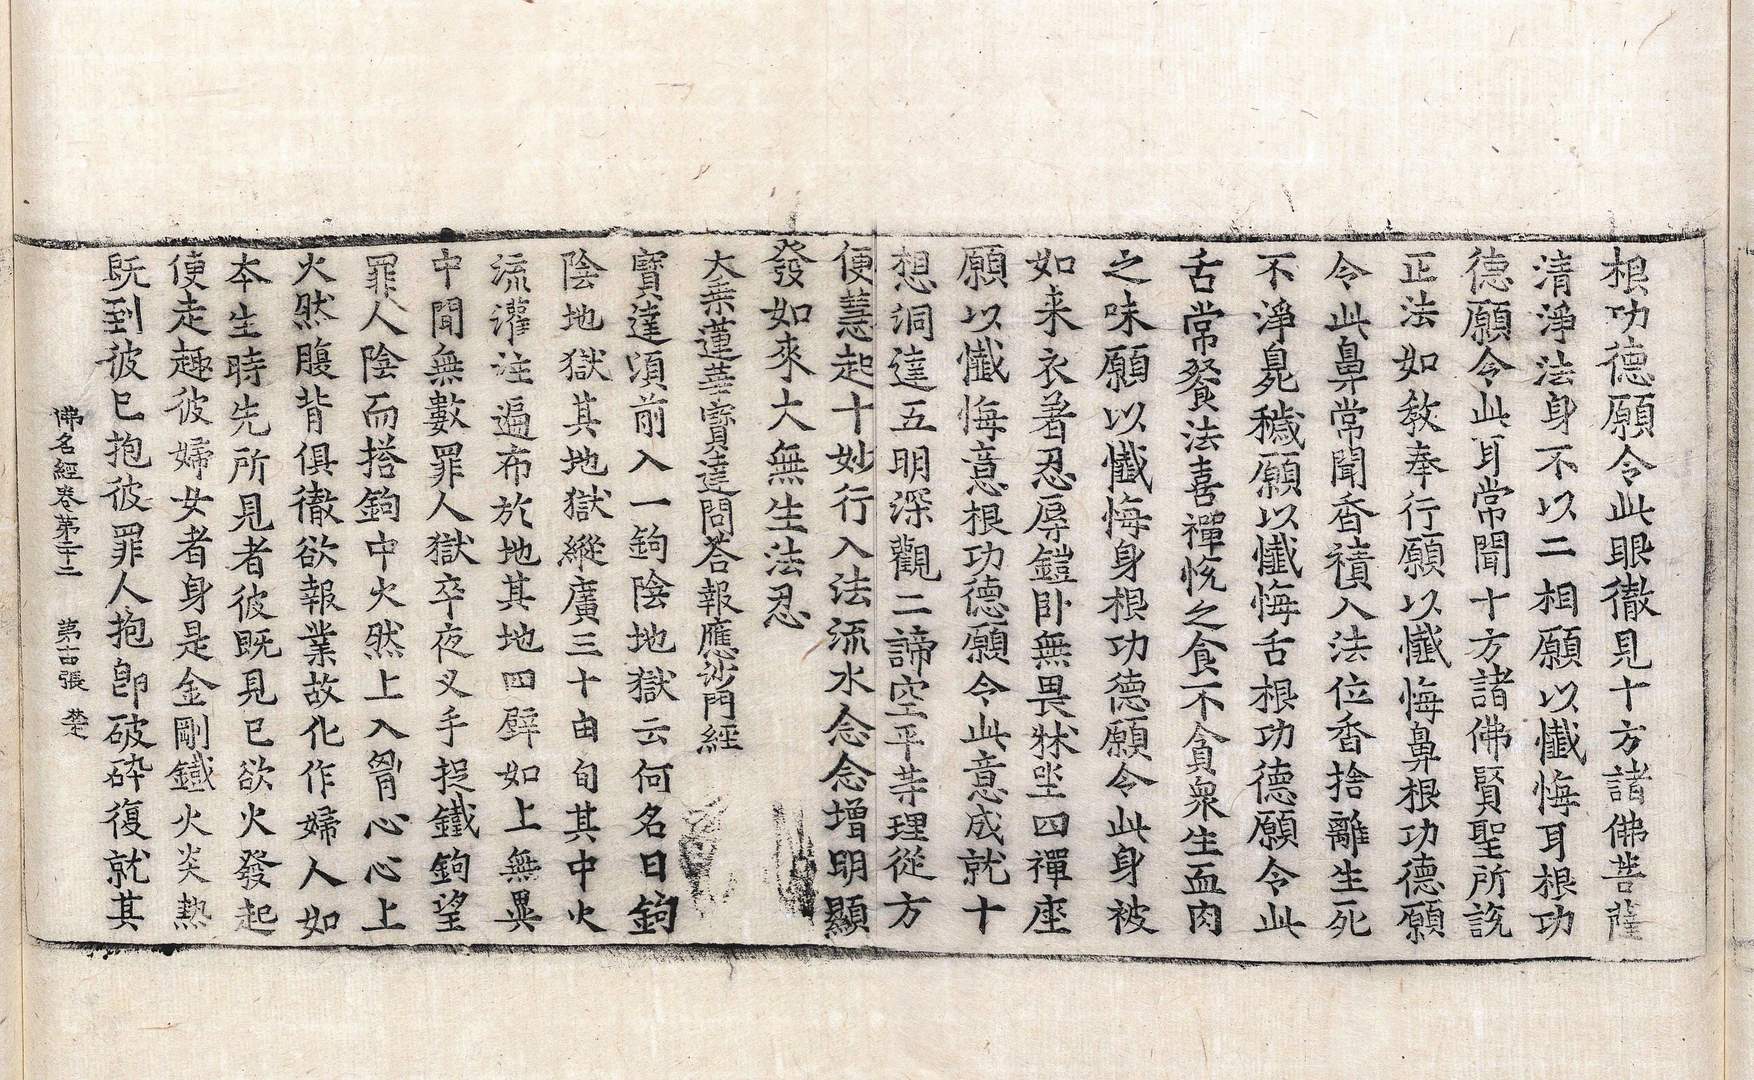 根功德願令此眼徹見十方諸佛菩薩
清淨法身不以二相願以懺悔耳根功
德願令此耳常聞十方諸佛賢聖所説
正法如教奉行願以懺悔鼻根功德願
令此鼻常聞香積入法位香捨離生死
不淨臭穢願以懺悔舌根功德願令此
舌常餐法喜禪悅之食不貪衆生血肉
之味願以懺悔身根功德願令此身被
如来衣著忍辱鎧卧無畏牀坐四禪座
願以懺悔意根功德願令此意成就十
想洞達五明深觀二諦空平等理從方
便慧起十妙行入法流水念念增明顯
發如來大無生法忍
大乗蓮華寳達問荅報應沙門經
寳達湏前入一鉤陰地獄云何名曰鉤
陰地獄其地獄縱廣三十由旬其中火
流灌注遍布於地其地四壁如上無異
中聞無數罪人獄卒夜叉手捉鐵鉤望
罪人陰而搭鉤中火然上入胷心心上
火然腹背俱徹欲報業故化作婦人如
本生時先所見者彼既見已欲火發起
便走趣彼婦女者身是金剛鐵火炎熱
既到彼已抱彼罪人抱即破碎復就其
佛名經卷第二十二 第十古張 楚